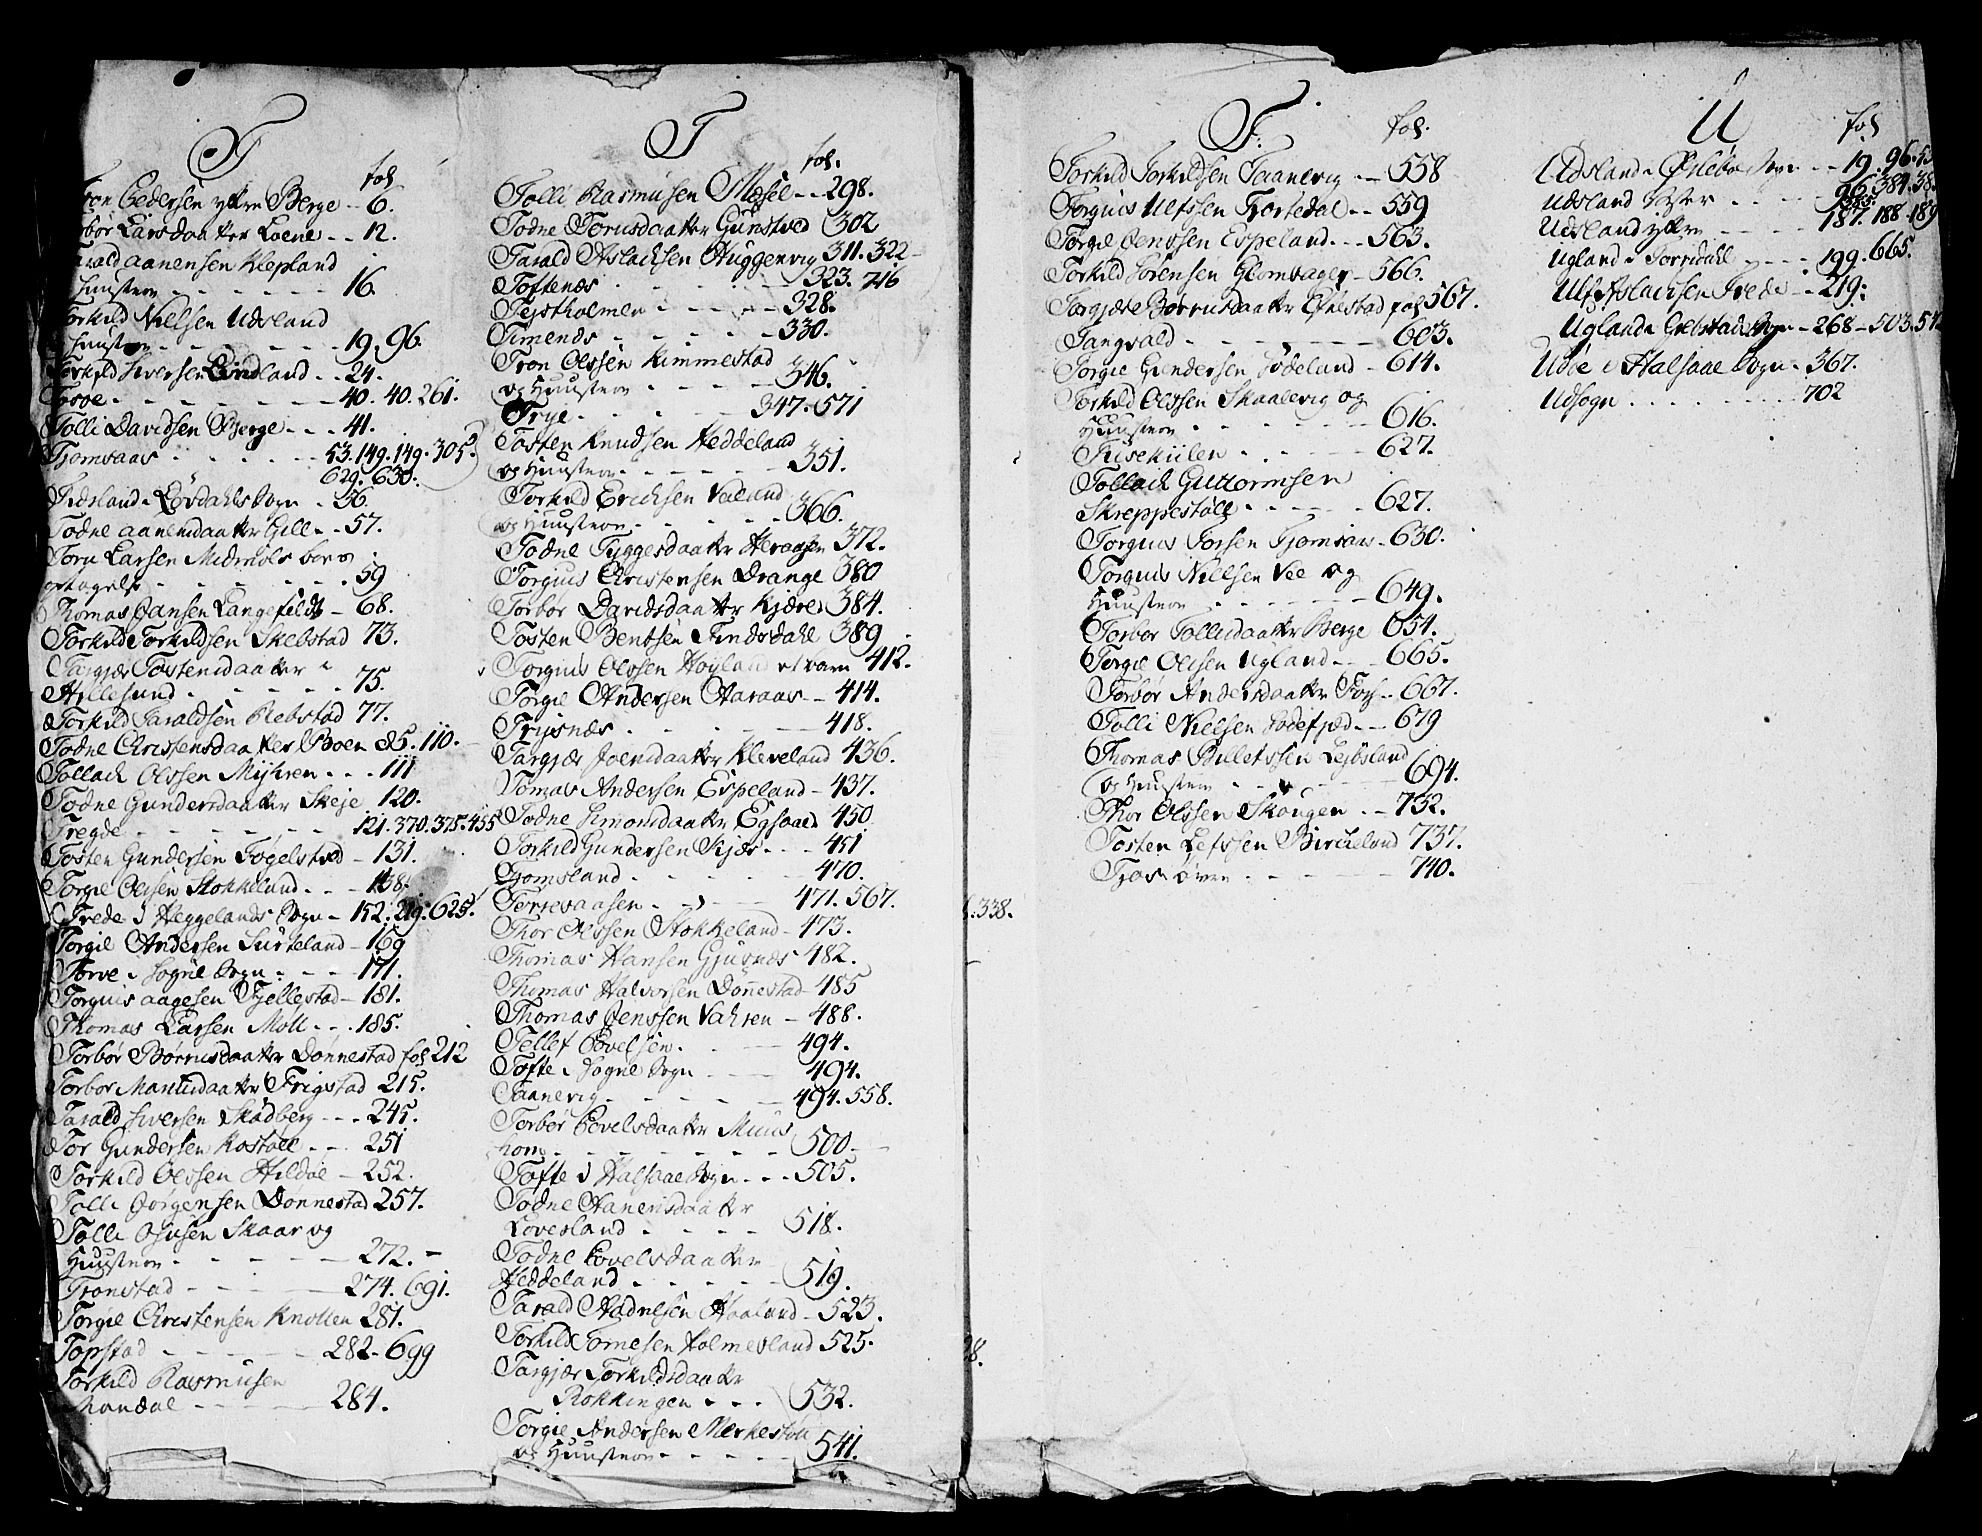 T
fol
Tron Pedersen yttre Berge - - 6.
Torbor Larsdaatter Loene - - 12.
Tarald Aanensen Klepland
Huustrou - - - - - 16.
Torkild Nielsen Udsland
Huustrou - - - - - 19. 96.
Torkild Iversen Lindland - - 24.
Tosøe - - - - - 40. 40. 261.
Tolli Davidsen Bierge - - - 41.
Tiomsaas - - - - - 53. 149. 149. 305.
629. 630.
Tidsland i Løvdahls Sogn - 56.
Todne Aanensdaatter Gill - - 57.
Toru Larsen
- - - - - 59
Thomas Jansen Langefeldt - 68.
Torkild Torkildsen Skebstad 73.
Targjær Tostensdaatter
Hillesund - - - - - 75.
Torkild Taraldsen Rebstad 77.
Todne Christensdaatter Boen 85. 110.
Tollach Olssen Myhren - - - 111
Todne Gundersdaatter Skeje 120.
Tregde - - - - - 121. 370. 375. 455
Tosten Gundersen Fogelstved - 131.
Torgie Olssen Stokkeland - - - 138.
Trede i Heggelands Sogn - 152. 219. 625.
Torgie Andersen Surteland - 169
Torve i Sogne Sogn - - - 171.
Torguus Aagesen Fjellestad - 181.
Thomas Larsen Moll - - - 185.
Torbør Børrusdaatter Dønnestad fol 212
Torbor Mantzdaatter Frigstad 215.
Tarald Iversen Skadberg - - - 245.
Tor Gundersen Kostøll - - - 251
Torkild Olssen Hildøe - 252.
Tolli Jørgensen Donnestad 257.
Tolli Osusen Skaar og
Huustrou - - - - - 272.
Tronstad - - - - - 274. 691.
Torgie Christensen Knollen 281.
Topstad - - - - - 282. 699
Torkild Rasmusen
Mandal - - - - - 284.
T
fol.
Tolli Rasmusen Mæsel - - 298.
Todne Torusdaatter Gunstved 302
Tarald Aslachsen Huggenvig 311. 322
Toftenæs - - - - - 323. 746
Tejstholmen - - - - - 328.
Timenes - - - - - 330.
Tron Olssen Kimmestad
og Huustrou - - - - - 346.
Trye - - - - - 347. 571
Tosten Knudsen Heddeland
og Huustrou - - - - - 351.
Torkild Erichsen Valand
og Huustrou - - - - - 366.
Todne Tyggesdaatter Heraasen 372.
Torgius Christensen Drange 380
Torbor Davidsdaatter Kjære 384.
Tosten Bentsen Findsdahl 389
Torguus Olssen Høyland et barn 412.
Torgie Andersen Aaraas - - 414.
Trysnæs - - - - - 418.
Targjær Joensdaatter Kleveland 436.
Tomas Andersen Espeland - 437.
Todne Simonsdaatter Egsaaed 450
Torkild Gundersen Skjær - - - 451
Tjomsland - - - - - 470.
Torjevaasen - - - - - 471. 567.
Thor Olssen Stokkeland - 473.
Thomas Hansen Gjusnæs 482.
Thomas Halvorsen Dønnestad - 485
Thomas Jenssen Vahren - 488.
Tellef Povelsen - - - 494.
Tofte i Sogne Sogn - - - 494.
Taanevig - - - - - 494. 558.
Torbør Povelsdaatter Muus
hom - - - - - 500.
Tofte i Halsaae Sogn - - - 505.
Todne Aanensdaatter
Lovesland - - - - 518.
Todne Povelsdaatter
Heddeland - - - - - 519.
Tarald Aadnesen Haaland - 523.
Torkild Tomesen Holmesland 525.
Targjær Torkildsdaatter
Rokkingen - - - 532.
Torgie Andersen Merkestøll
og Huustrou - - - - - 541.
1. 338.
28.
T.
fol.
Torkild Torkildsen Taanevig - - 558
Torguus Ulfssen Tjortedal - - 559
Torgie Jenssen Espeland - - - 563.
Torkild Sørensen Glomsager - 566.
Torgjære Børrusdaatter Øjnestad fol 567.
Tangvald - - - - - 603.
Torgie Gundersen Godeland - 614.
Torkild Olssen Skaalevig og
Huustrou - - - - - 616.
Tusekiilen - - - - - 627.
Tollach Guttormsen
Skreppestøll - - - - - 627.
Torguus Torsen Tjomsaas - 630.
Torguus Nielsen Vee og
Huustrou - - - - - 649.
Torbor Tollisdaatter Berge 654.
Torgie Olssen Ugland - - - 665.
Torbør Andersdaatter Fos - - 667.
Tolli Nielsen Godefjæd - - - 679
Thomas Buletssen Lejbsland
og Huustrou - - - - - 694.
Thor Olssen Skougen - - - 732.
Tosten Lefssen Birckeland 737.
Tjosøren - - - - - 740.
U
fol
Udsland i Øslebø Sogn - - 19. 96. 53
Udsland Søster - - - 96. 384. 38.
385.
Udsland yttre - - - - - 187. 188. 189
Ugland i Torridahl - - - - 199. 665.
Ulf Aslachsen Trede - - 219.
Ugland i Grebstad Sogn - 268 - 503. 57
Udøe i Halsaae Sogn - 367.
Udsogn - - - - - 702